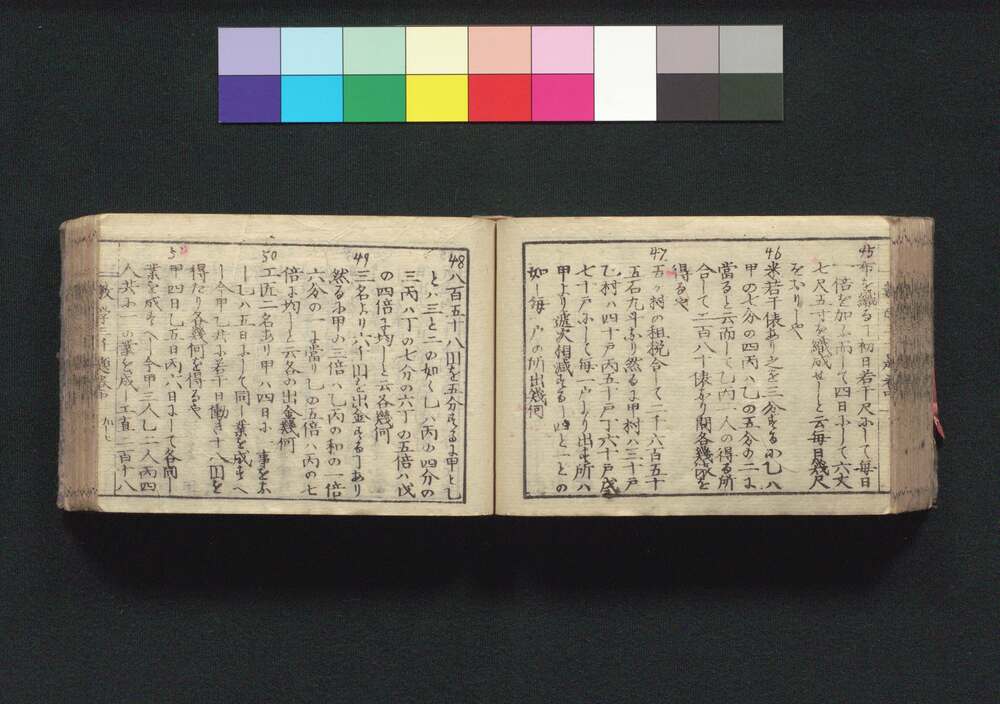 45 布を織る丁初日若干尺にして毎日
一倍を加ふ而して四日にして六丈
七尺五寸を織成せしと云毎日幾尺
を
46 米若干俵あり之を三分するに乙ハ
甲の七分の四丙ハ乙の五分の二に
當ると云而して乙丙二人の得る所
合して二百八十俵なり問各幾俵を
得るや
47 五ヶ村の租税合して二千六百五十
五石九斗なり然るに甲村ハ三十戸
乙村ハ四十戸丙五十戸丁六十戸戊
七十戸にして毎一戸より出す所ハ
甲より逓次相減する四と一との
如し毎戸の所出幾何
48 八百五十八圓を五分するに甲と乙
とハ三と二の如く乙ハ丙の四分の
三丙ハ丁の七分の六丁の五倍ハ戊
の四倍に均しと云各幾何
49 三名より六千圓を出金する丁あり
然るに甲の三倍ハ乙丙の和の一倍
六分の に當り乙の五倍ハ丙の七
倍に均しと云各の出金幾何
50 工匠二名あり甲ハ四日に 事をふ
し乙ハ五日にして同し業を成すへ
し今甲乙共に若干日働き十八圓を
得たり各幾何を得るや
5 甲四日乙五日丙六日にして各同し
業を成すへし今甲三人乙二人丙四
人共に一の業を成し工直二百十八